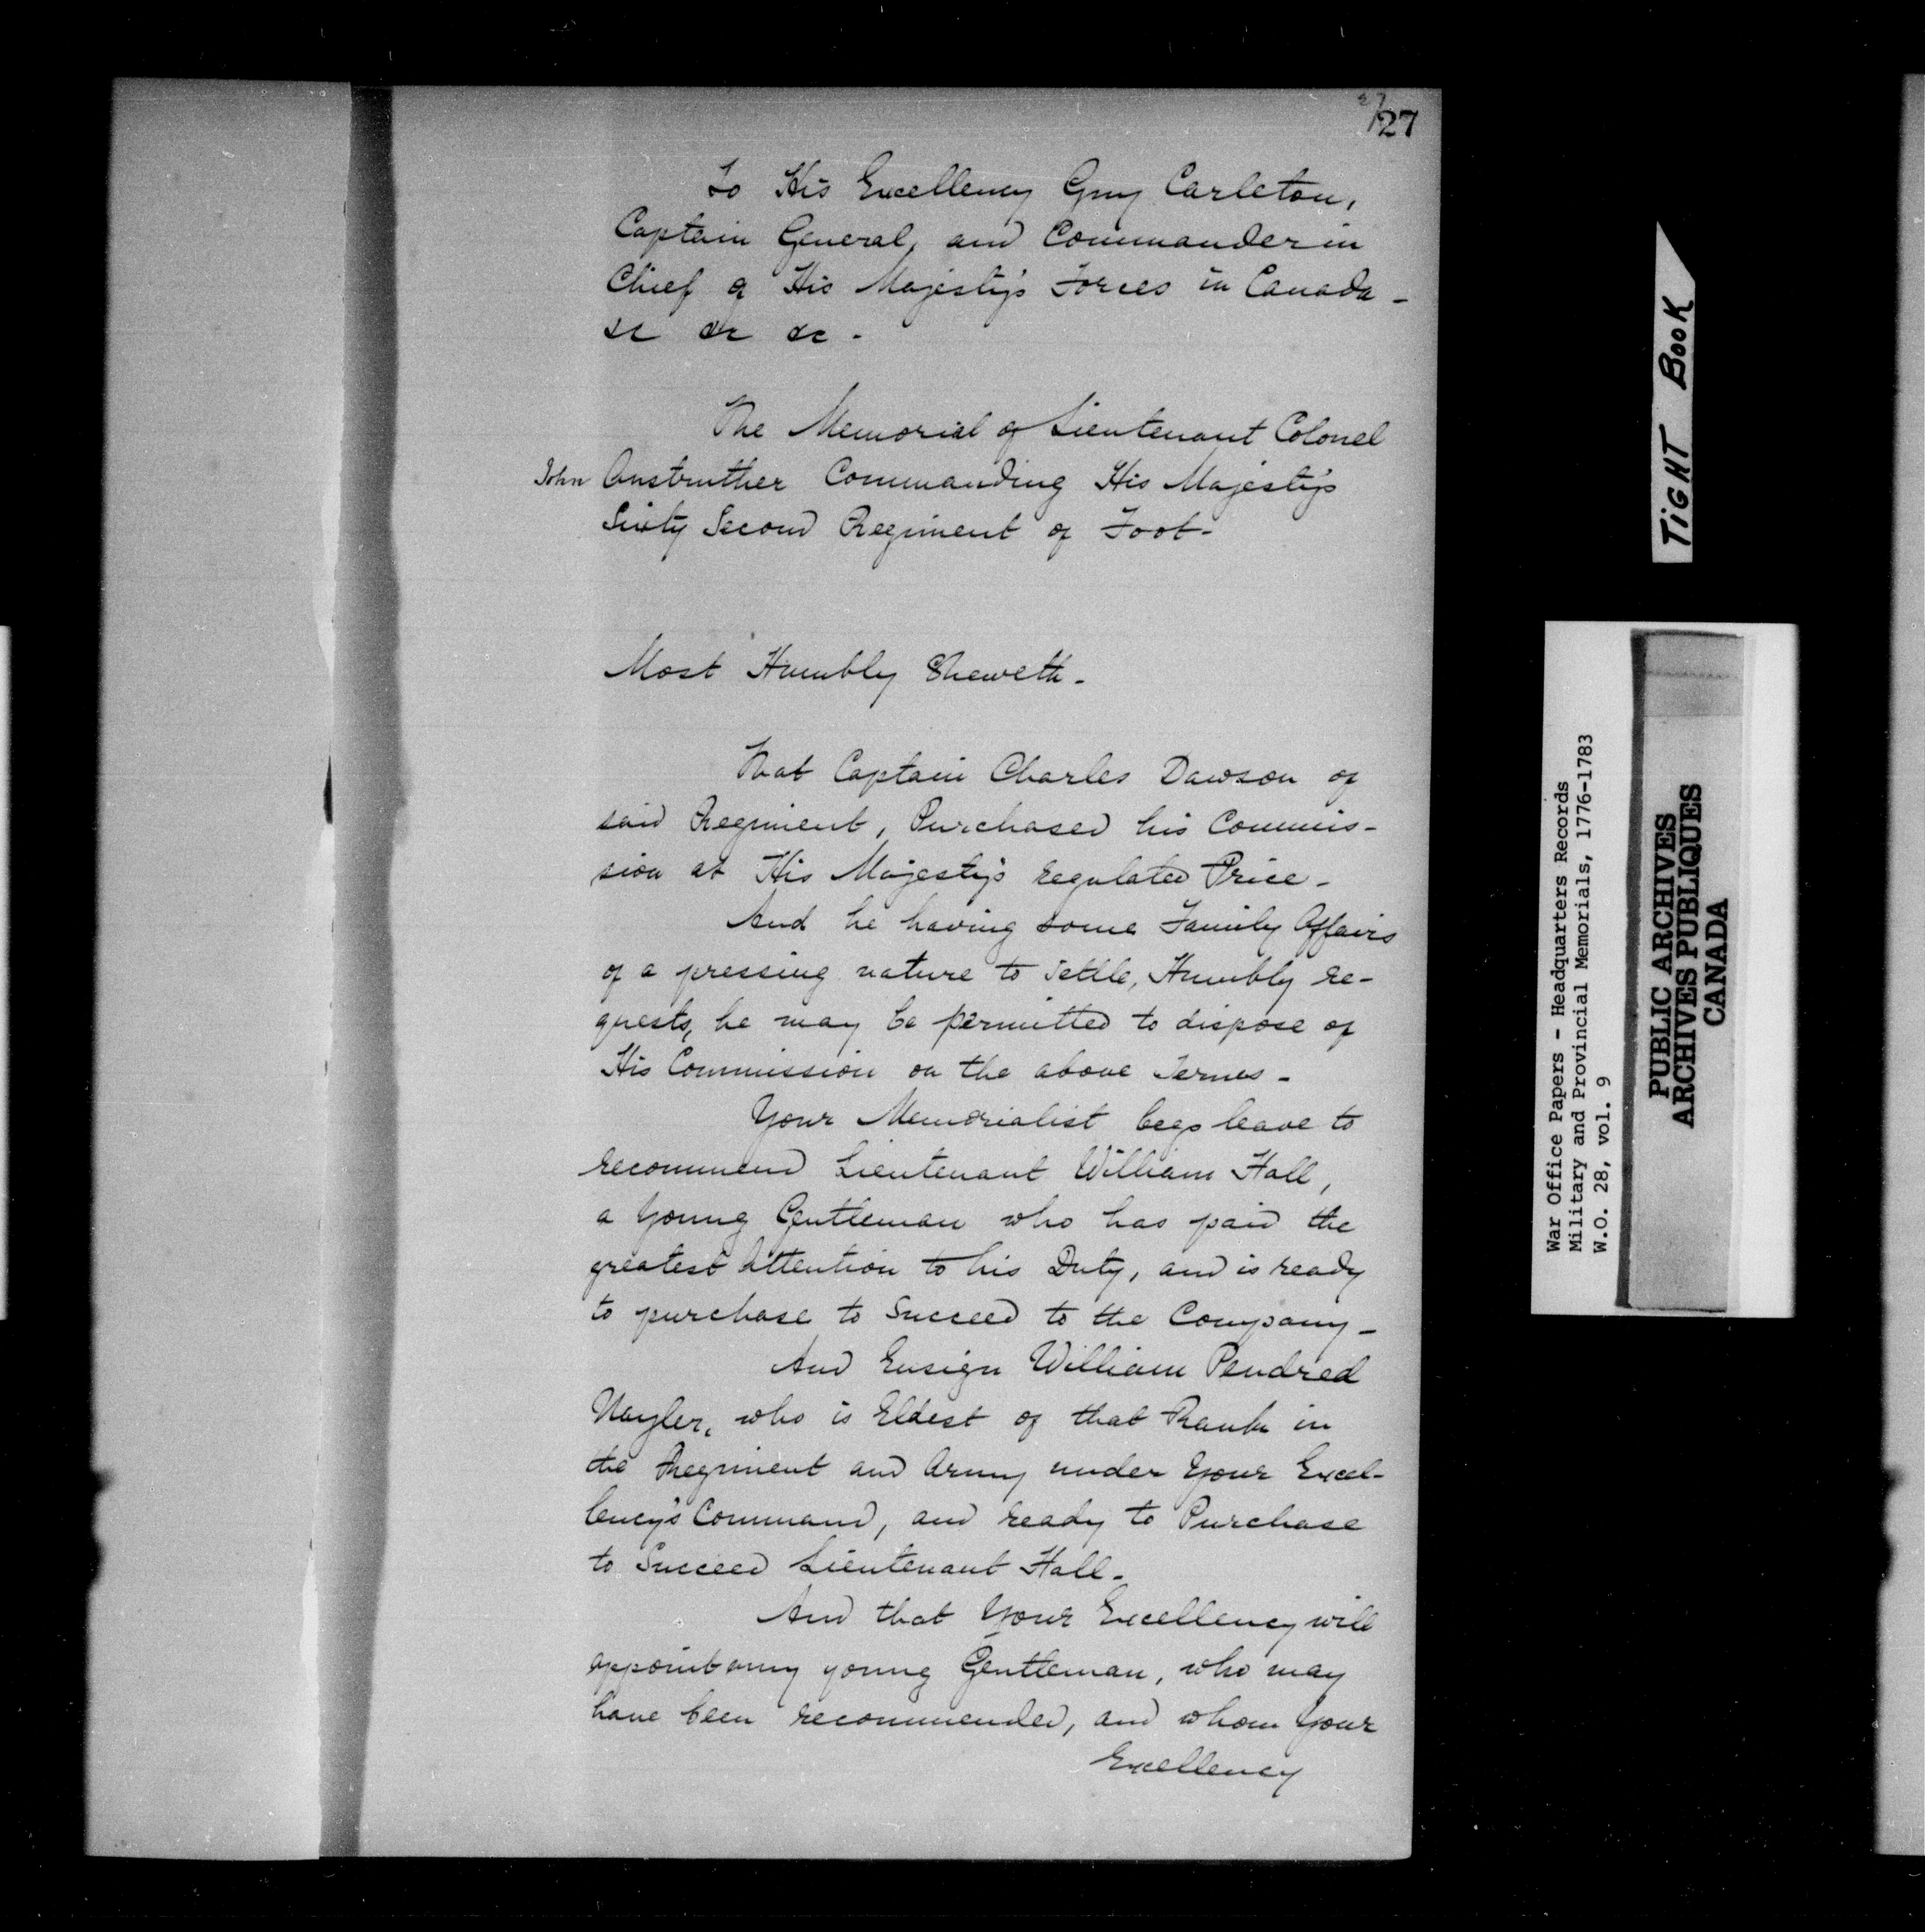 27
27
To His Excellency Guy Carleton,
Captain General, and Commander in
Chief of His Majesty's Forces in Canada -
&c &c &c -
The Memorial of Lieutenant Colonel
John Anstruther Commanding His Majesty's
Sixty Second Regiment of Foot -
Most Humbly Sheweth -
That Captain Charles Dawson of
said Regiment, Purchased his Commis-
sion at His Majesty's regulated Price -
And he having some Family Affairs
of a pressing nature to Settle, Humbly re-
quests, he may be permitted to dispose of
His Commission on the above Terms -
Your Memorialist begs leave to
recommend Lieutenant William Hall,
a Young Gentleman who has paid the
greatest Attention to his Duty, and is ready
to purchase to Succeed to the Company -
And Ensign William Pendred
Nayler, who is Eldest of that Rank in
the Regiment and Army under Your Excel-
lency's Command, and ready to Purchase
to Succeed Lieutenant Hall -
And that Your Excellency will
appoint any young Gentleman, who may
have been recommended, and whom Your
Excellency
TIGHT BOOK
War Office Papers - Headquarters Records
Military and Provincial Memorials, 1776-1783
W.O. 28, vol. 9
PUBLIC ARCHIVES
ARCHIVES PUBLIQUES
CANADA